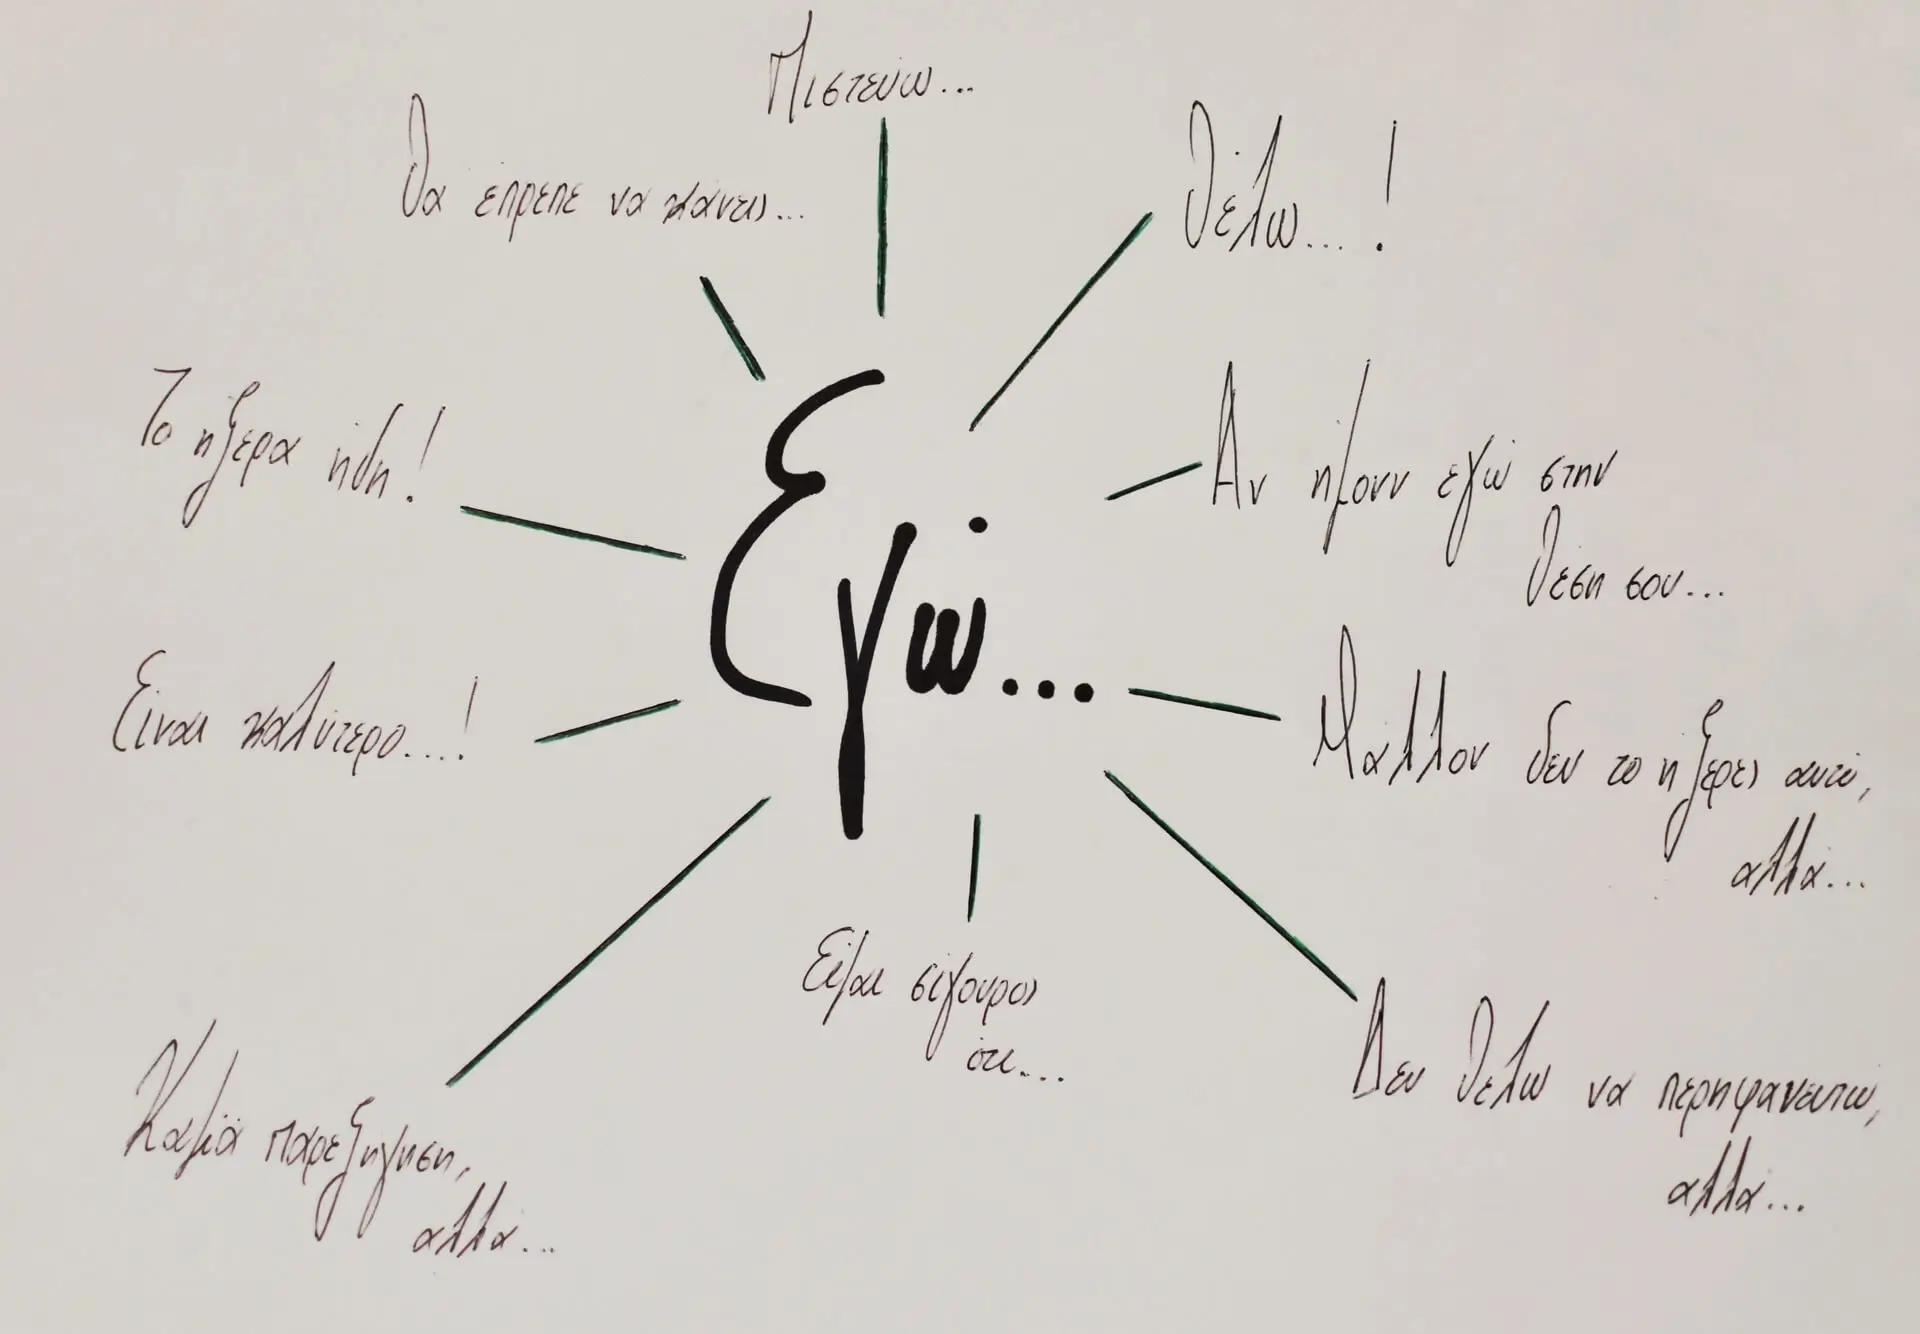 Πιστεύω...
Θα έπρεπε να κάνεις...
Θέλω...!
Το ήξερα ήδη!
Αν ήμουν εγώ στην
θέση σου...
Εγώ...
Είναι καλύτερο....!
Μάλλον δεν το ήξερες αυτό,
αλλά...
Είμαι σίγουρος
ότι...
Δεν θέλω να περηφανευτώ,
αλλά...
Καμία παρεξήγηση,
αλλά...